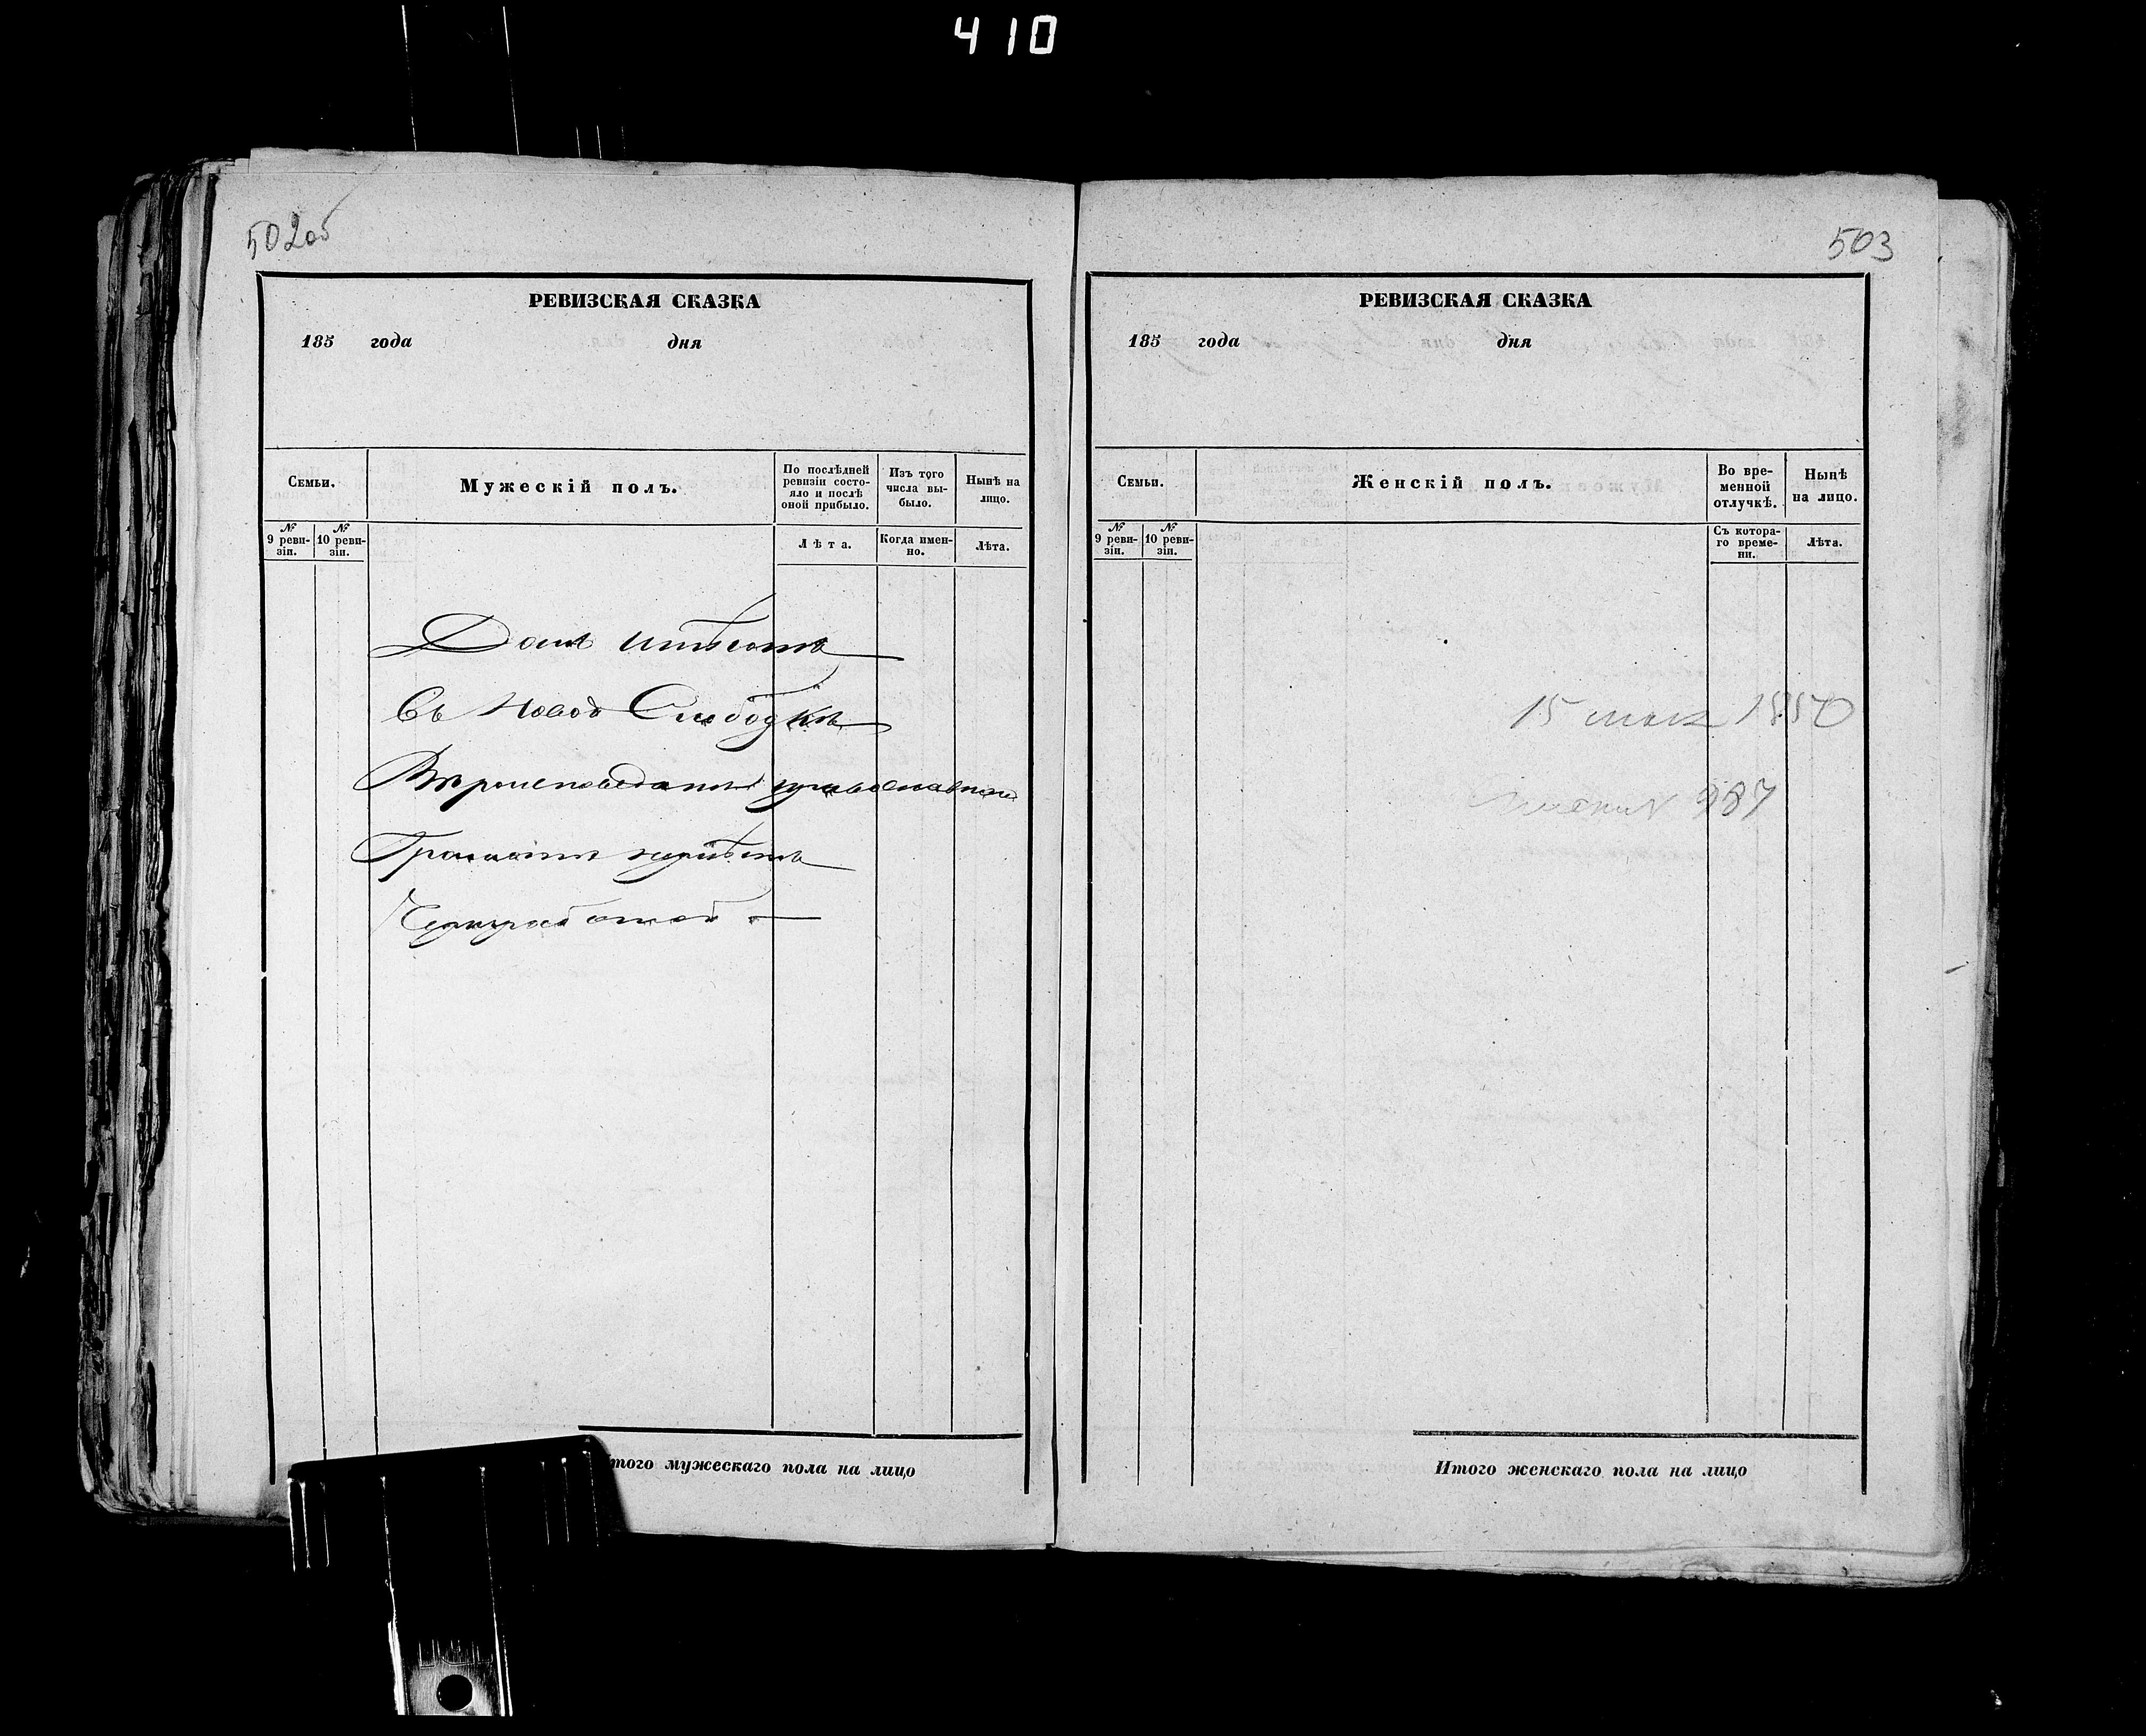 410
502об
РЕВИЗСКАЯ СКАЗКА
185 года дня
Семьи.
Мужескій полъ.
По послѣдней ревизіи состояло и послѣ оной прибыло.
Изъ того числа выбыло.
Нынѣ на лицо.
№ 9 ревизіи.
№ 10 ревизіи.
Лѣта.
Когда именно.
Лѣта.
Домъ имѣетъ
Въ Новой Слободкѣ
Вѣроисповеданія православнаго
Грамотѣ неумѣетъ
Чернработой
Итого мужескаго пола на лицо
503
РЕВИЗСКАЯ СКАЗКА
185 года дня
Семьи.
Женскій полъ.
Во временной отлучкѣ.
Нынѣ на лицо.
№ 9 ревизіи.
№ 10 ревизіи.
Съ котораго времени.
Лѣта.
15 мая 1850
987
Итого женскаго пола на лицо